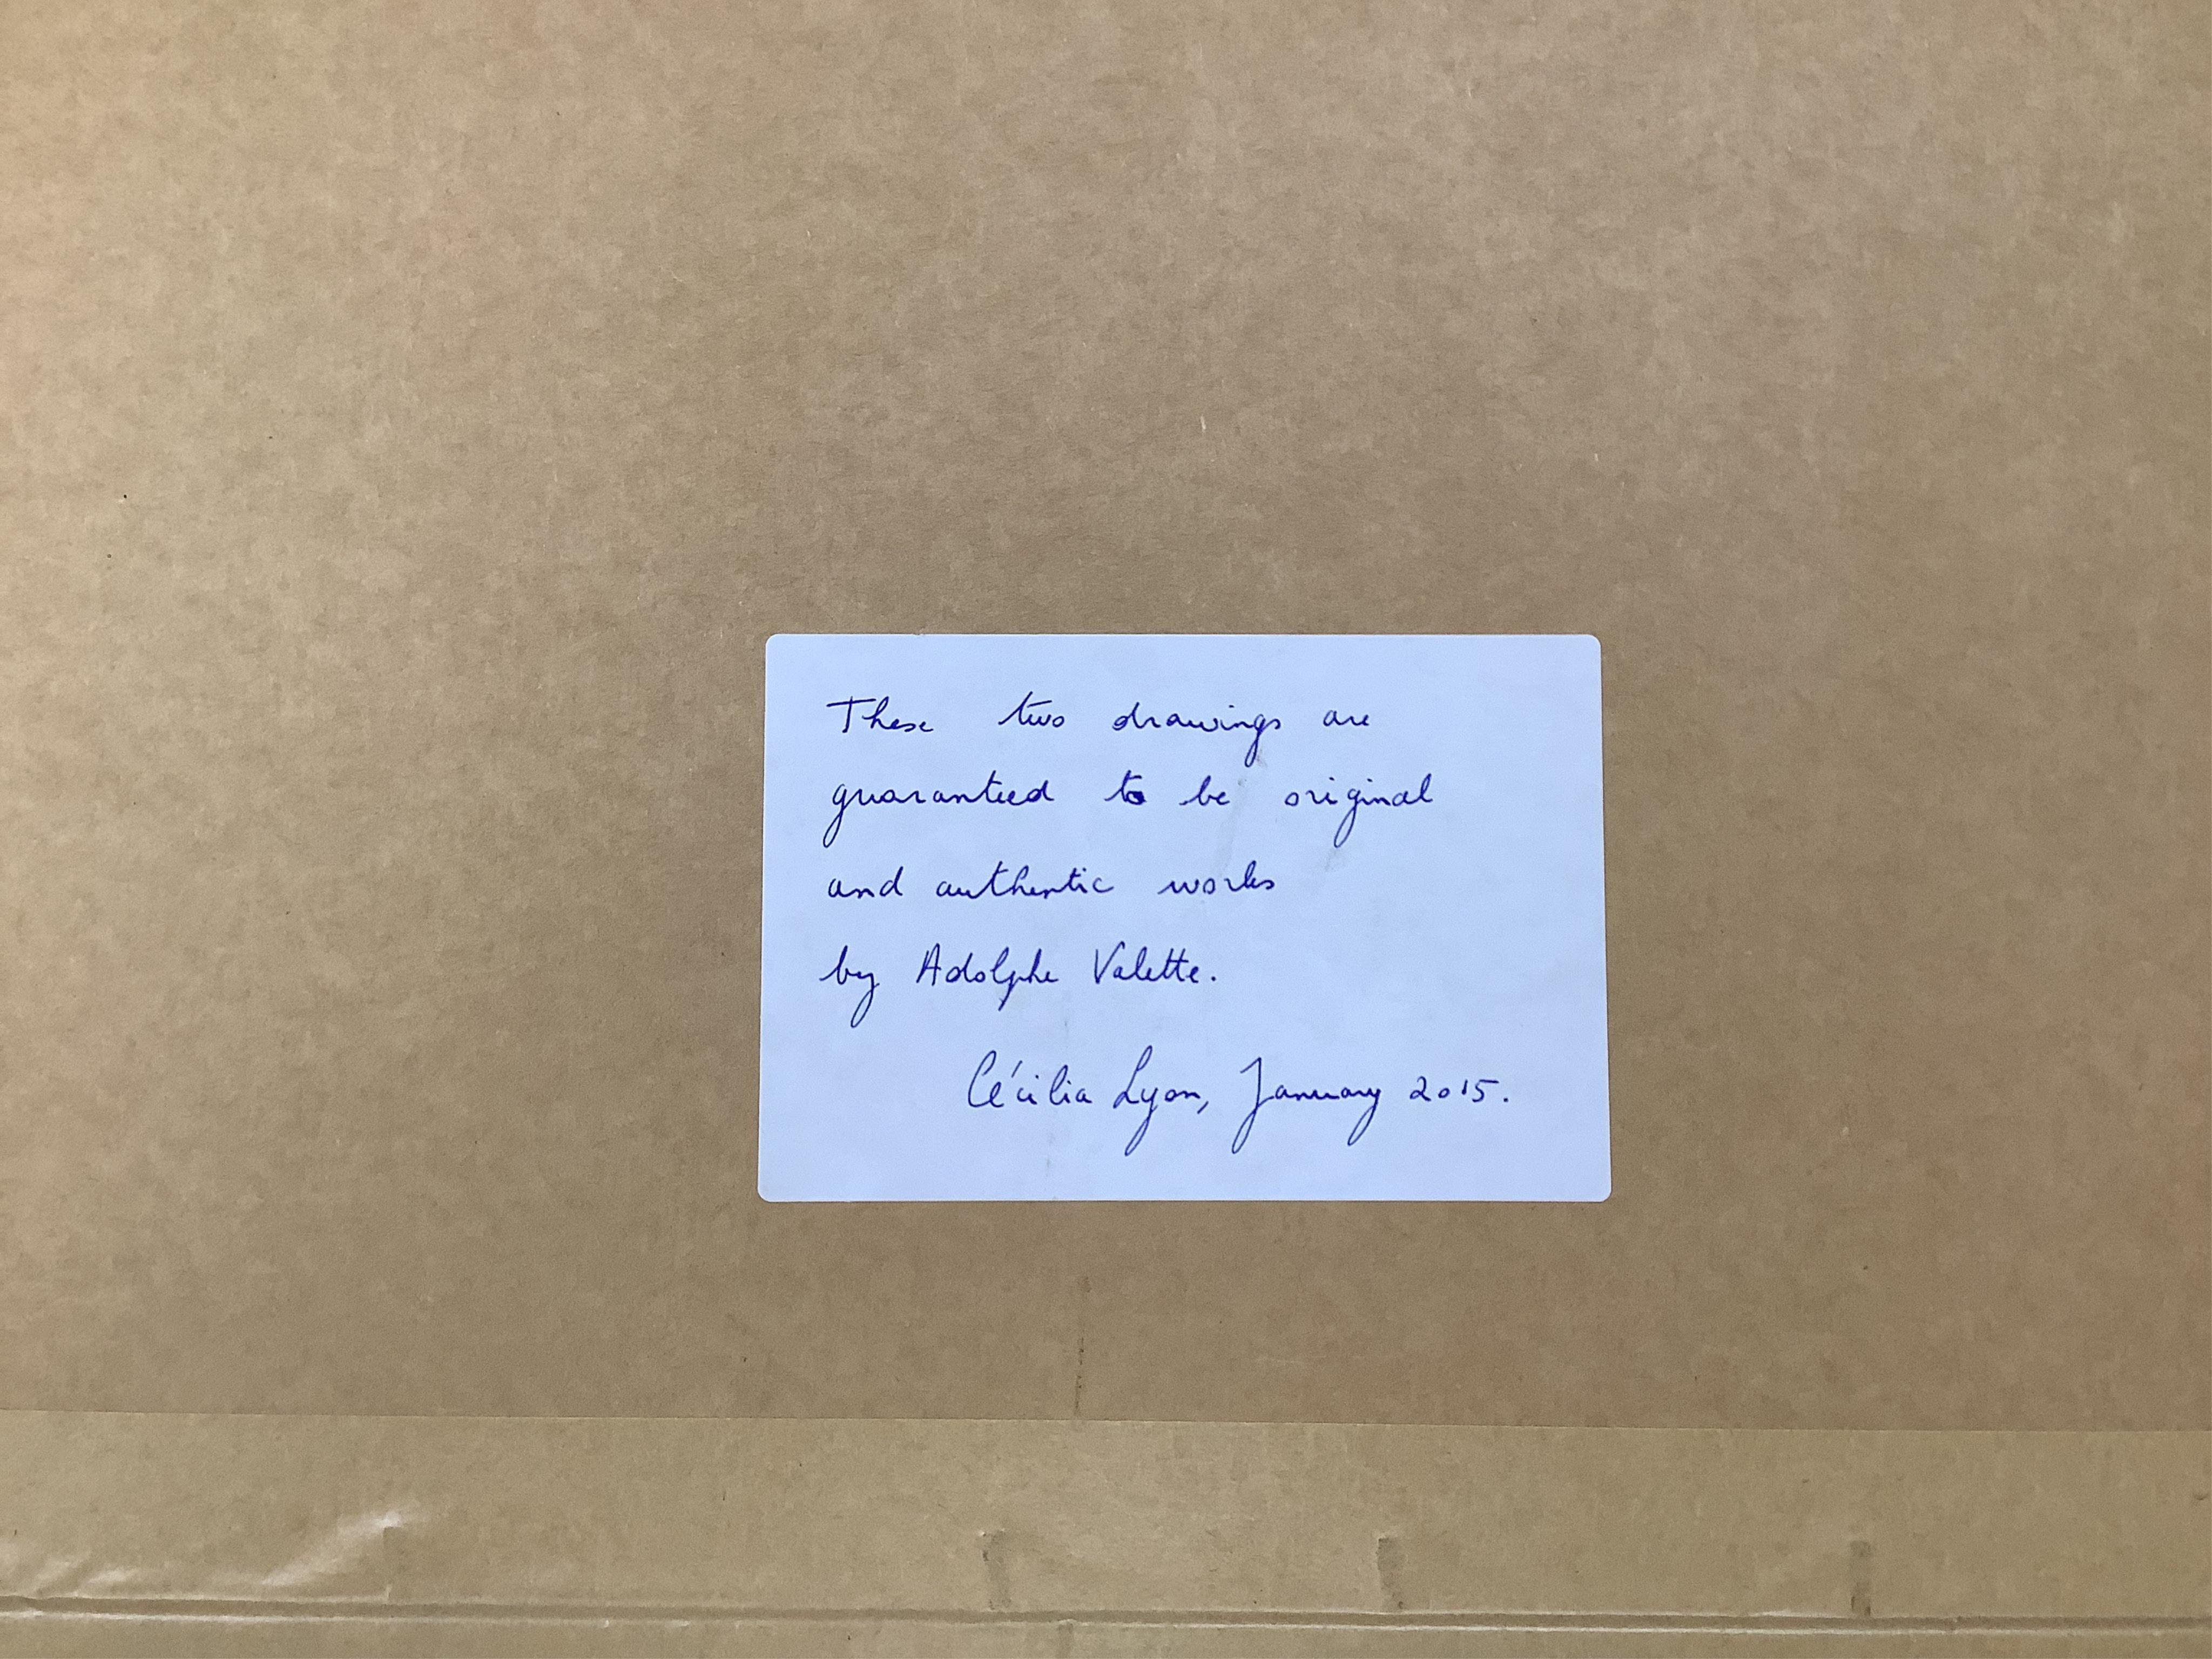 These two drawings are
guaranteed to be original
and authentic works
by Adolphe Valette.
Cécilia Lyon, January 2015.